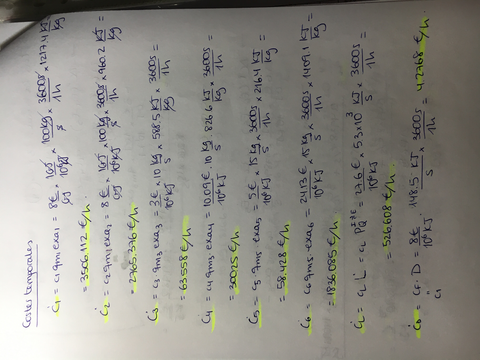 Costes temporales
Ċ₁ = c₁ q m₁ exa₁ = 8 € / GJ × 1GJ / 10⁶ kJ × 100 kg / s × 3600 s / 1 h × 1217.4 kJ / kg =
= 3506.112 €/h.
Ċ₂ = c₂ q m₂ exa₂ = 8 € / GJ × 1GJ / 10⁶ kJ × 100 kg / s × 3600 s / 1 h × 960.2 kJ / kg =
= 2765.376 €/h.
Ċ₃ = c₃ q m₃ exa₃ = 3 € / 10⁶ kJ × 10 kg / s × 588.5 kJ / kg × 3600 s / 1 h =
= 63.558 €/h.
Ċ₄ = c₄ q m₄ exa₄ = 10.09 € / 10⁶ kJ · 10 kg / s · 826.6 kJ / kg × 3600 s / 1 h =
= 300.25 €/h.
Ċ₅ = c₅ q m₅ exa₅ = 5 € / 10⁶ kJ × 15 kg / s × 3600 s / 1 h × 216.4 kJ / kg =
= 58.428 €/h.
Ċ₆ = c₆ q m₆ exa₆ = 24.13 € / 10⁶ kJ × 15 kg / s × 3600 s / 1 h × 1409.1 kJ / kg =
= 1836.085 €/h.
= 27.6 € / 10⁶ kJ × 5.3 × 10³ kJ / s × 3600 s / 1 h =
= 526.608 €/h.
D = 8 € / 10⁶ kJ · 148.5 kJ / s × 3600 s / 1 h = 4.2768 €/h.
c₁